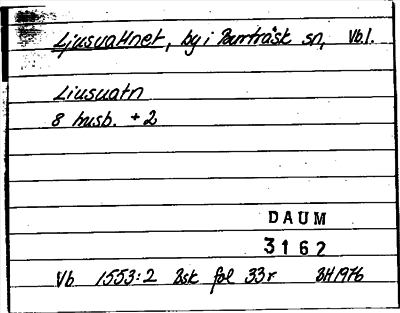 Ljusvattnet, by i Burträsk sn, Vb.l.
Liusuatn
8 husb. + 2
DAUM
3162
Vb 1553:2 Bsk fol 33r BH1976